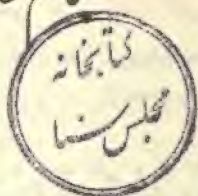 کتابخانه
مجلس سنا